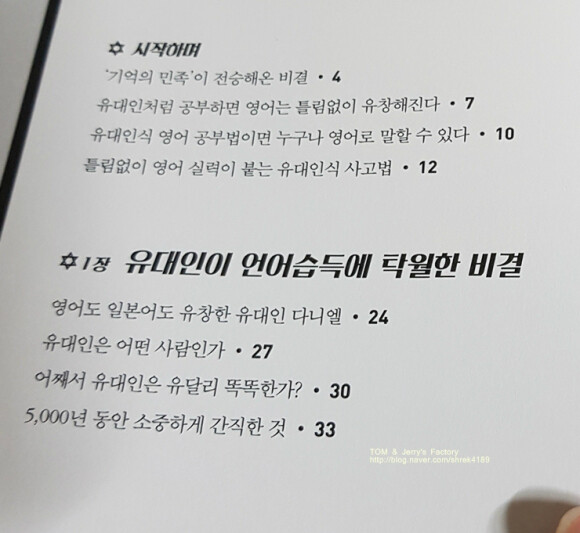 ✡ 시작하며
‘기억의 민족’이 전승해온 비결 • 4
유대인처럼 공부하면 영어는 틀림없이 유창해진다 • 7
유대인식 영어 공부법이면 누구나 영어로 말할 수 있다 • 10
틀림없이 영어 실력이 붙는 유대인식 사고법 • 12
✡ 1장 유대인이 언어습득에 탁월한 비결
영어도 일본어도 유창한 유대인 다니엘 • 24
유대인은 어떤 사람인가 • 27
어째서 유대인은 유달리 똑똑한가? • 30
5,000년 동안 소중하게 간직한 것 • 33
TOM & Jerry's Factory
http://blog.naver.com/shrek4189